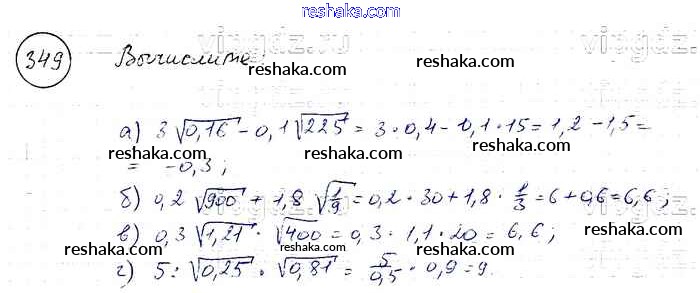 reshaka.com
349 Вычислите:
reshaka.com reshaka.com
а) 3√0,16 - 0,1√225 = 3·0,4 - 0,1·15 = 1,2 - 1,5 =
= -0,3;
reshaka.com reshaka.com
б) 0,2 √900 + 1,8 √1/9 = 0,2·30 + 1,8·1/3 = 6 + 0,6 = 6,6;
reshaka.com
в) 0,3 √1,21 · √400 = 0,3·1,1·20 = 6,6;
reshaka.com reshaka.com
г) 5 : √0,25 · √0,81 = 5/0,5 · 0,9 = 9.
reshaka.com